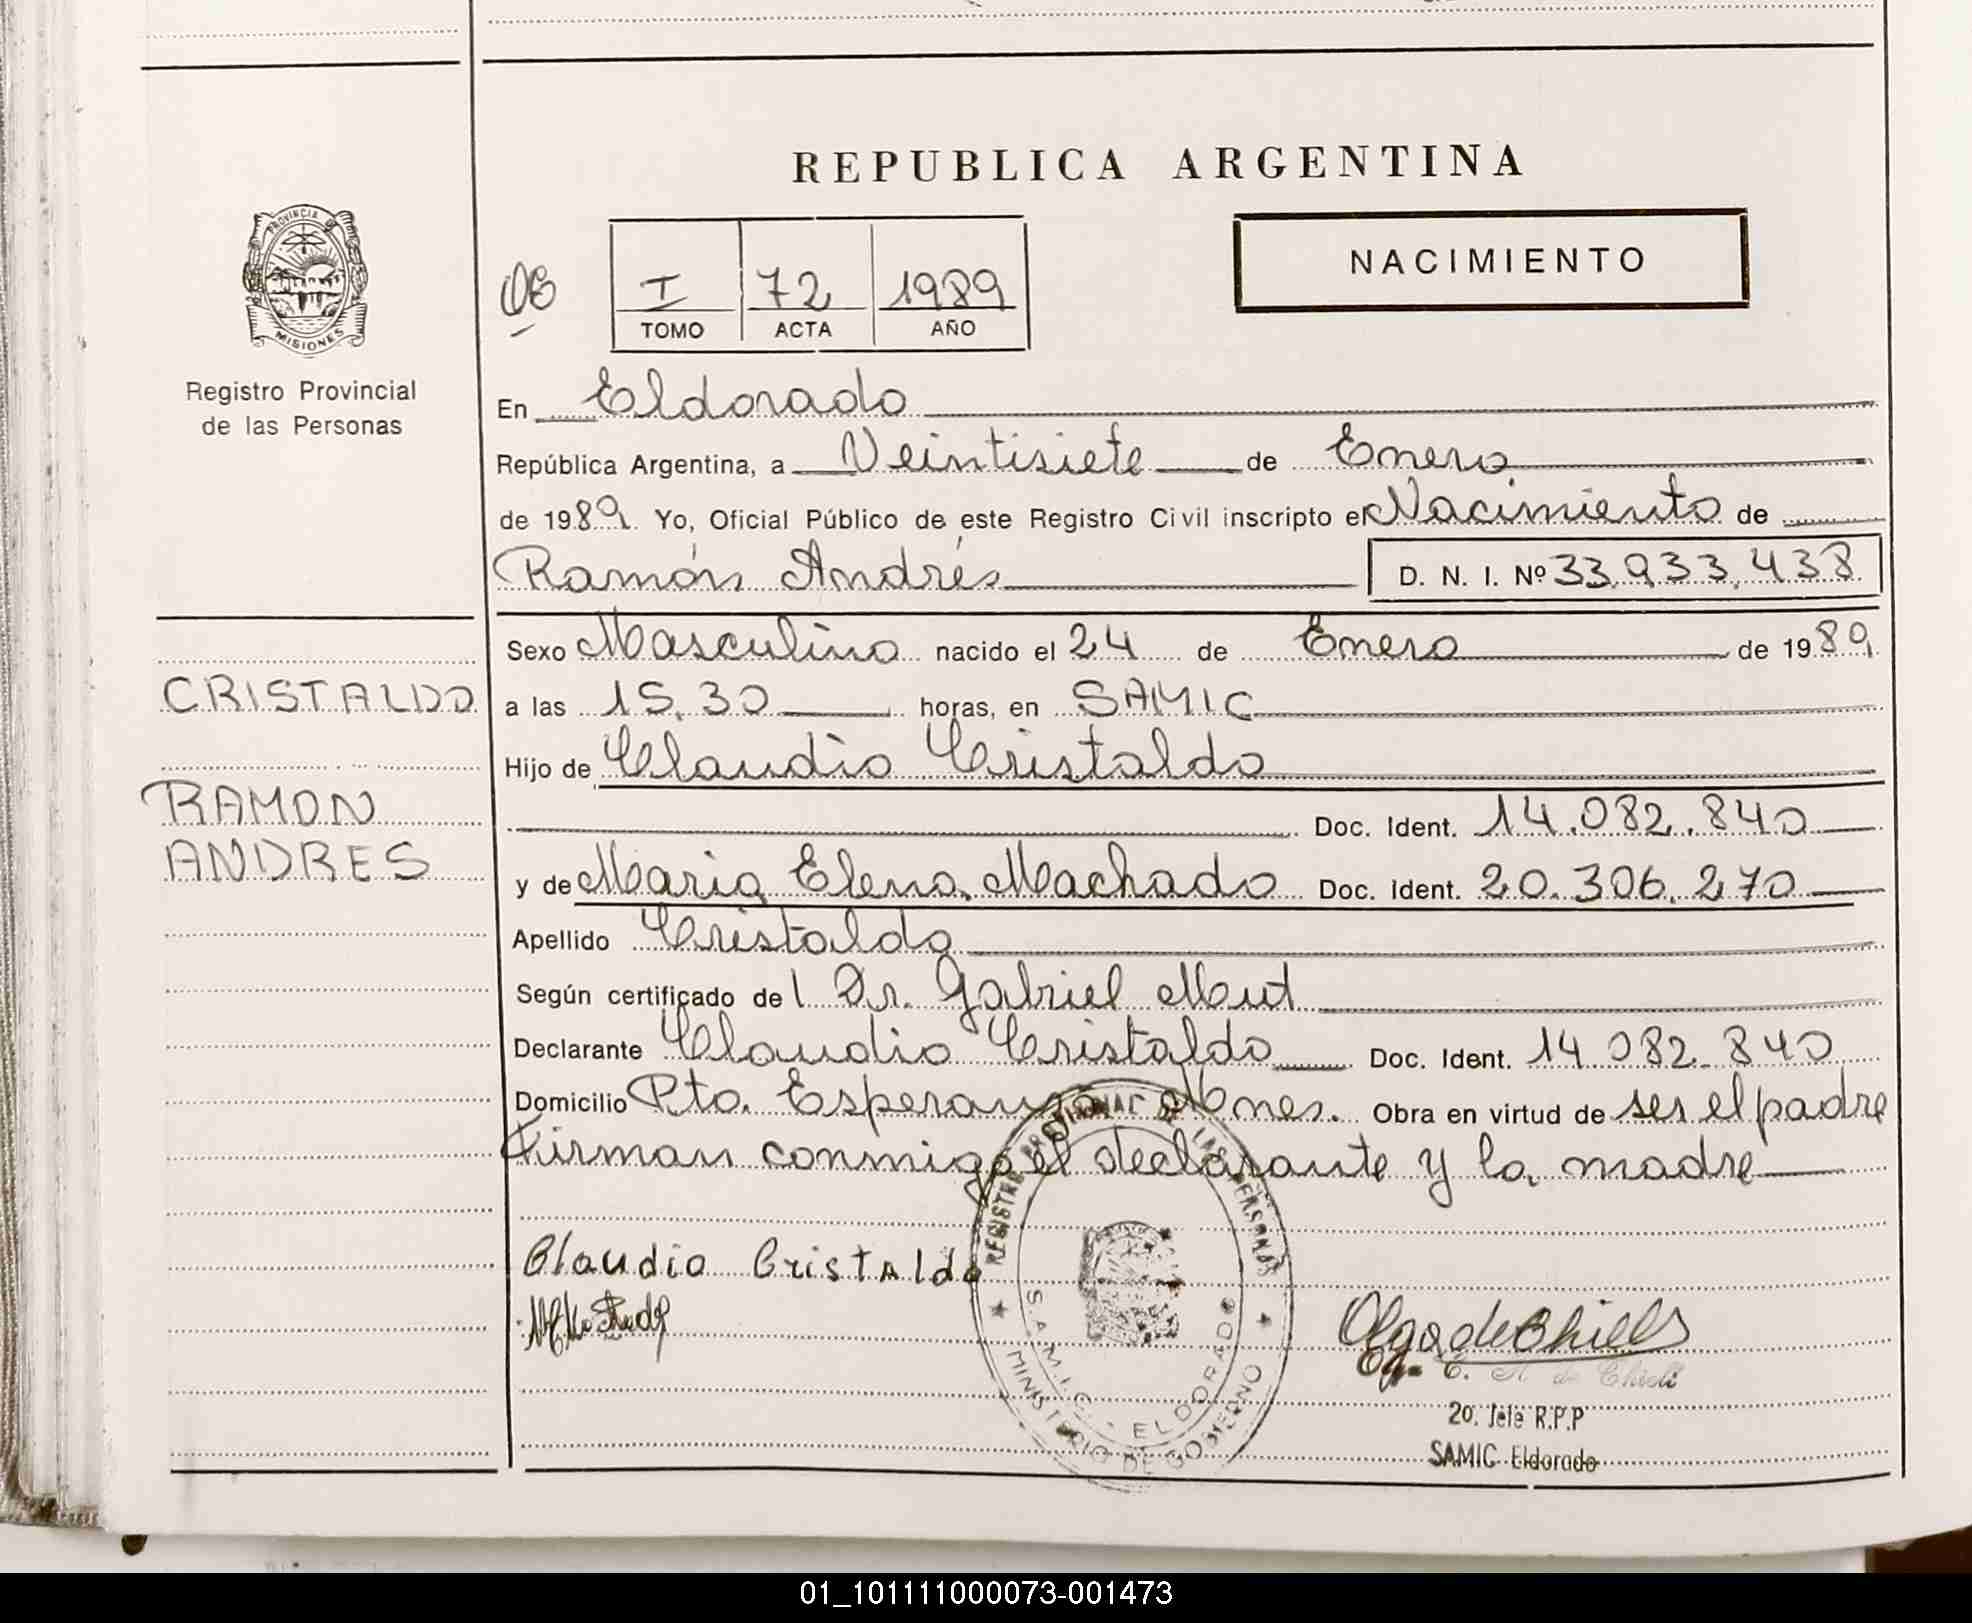 REPUBLICA ARGENTINA
NACIMIENTO
PROVINCIA DE
MISIONES
Registro Provincial
de las Personas
I 72 1989
TOMO ACTA AÑO
En Eldorado
República Argentina, a Veintisiete de Enero
de 1989. Yo, Oficial Público de este Registro Civil inscripto el Nacimiento de
Ramón Andrés D. N. I. Nº 33.933.438
Sexo Masculino nacido el 24 de Enero de 1989
CRISTALDO
a las 15.30 horas, en SAMIC
Hijo de Claudio Cristaldo
RAMON
ANDRES
Doc. Ident. 14.082.840
y de Maria Elena Machado Doc. Ident. 20.306.270
Apellido Cristaldo
Según certificado del Dr. Gabriel Mut
Declarante Claudio Cristaldo Doc. Ident. 14.082.840
Domicilio Pto. Esperanza Mnes. Obra en virtud de ser el padre
Firman conmigo el declarante y la madre
Claudio Cristaldo
REGISTRO PROVINCIAL DE LAS PERSONAS
S.A.M.I.C. - ELDORADO
MINISTERIO DE GOBIERNO
Olga de Chielli
20. Jefe R.P.P
SAMIC Eldorado
01_101111000073-001473